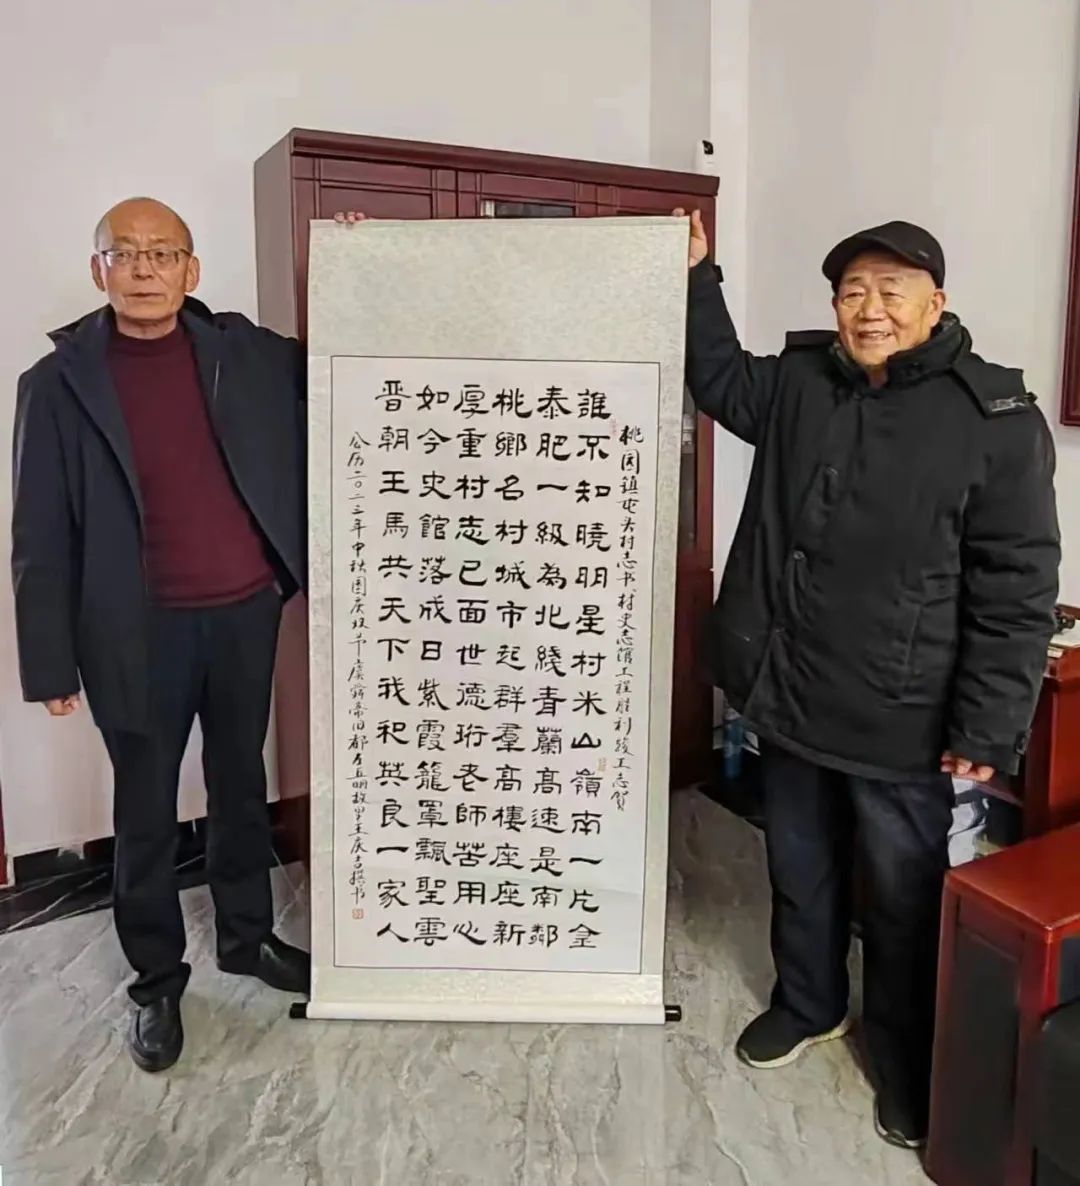 桃园镇屯头村志书、村史志馆工程胜利竣工志贺
誰不知曉明星村米山嶺南一片金
泰肥一级為北綫青蘭高速是南鄰
桃鄉名村城市起群羣高樓座座新
厚重村志已面世德珩老師苦用心
如今史館落成日紫霞籠罩飄聖雲
晋朝王馬共天下我和良一家人
公历二〇二三年中秋国庆双节虞舜帝旧都左丘明故里王庆吉撰书